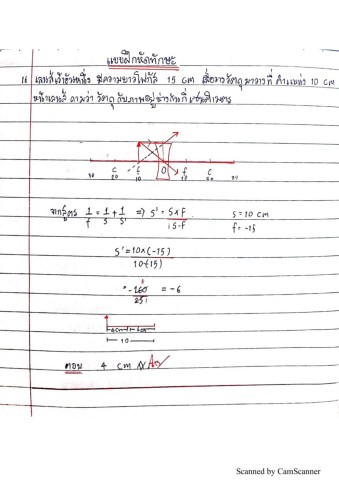 แบบฝึกหัดทักษะ
1. เลนส์เว้าอันหนึ่ง มีความยาวโฟกัส 15 cm เมื่อวางวัตถุมาวางที่ ตำแหน่ง 10 cm
หน้าเลนส์ ถามว่า วัตถุ กับภาพอยู่ห่างกันกี่เซนติเมตร
C f O f C
20 10 10 20
จากสูตร 1/f = 1/s + 1/s' => s' = s×f / s-f s = 10 cm
f = -15
s' = 10×(-15) / 10-(-15)
= -150 / 25 = -6
4cm 6cm
10
ตอบ 4 cm
Scanned by CamScanner